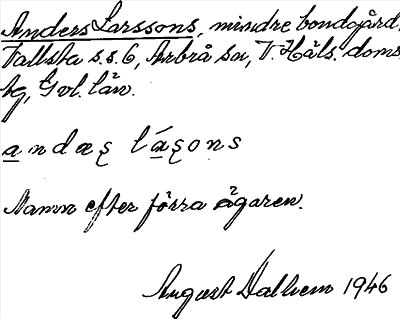 Anders Larssons, mindre bondgård,
Vallsta s.s.6, Arbrå sn, V. Häls. doms.
hg, Gvl. län.
andaş láşons
Namn efter förra ägaren.
August Dalhem 1946